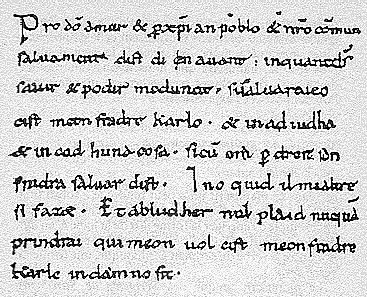 Pro dō amur & p xp̄ian poblo & nr̄o cōmun
saluament. dist di en auant. inquantdš
sauir & podir medunat. sisaluaraieo
cist meon fradre Karlo. & in ad iudha
& in cad huna cosa. sicū om p dreit son
fradra saluar dist. Ino quid il mialtre
si fazet. Et ab ludher nul plaid nūquā
prindrai qui meon uol cist meon fradre
Karle in damno sit.